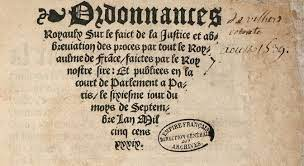 Ordonnances
Royaulx Sur le faict de la Justice et ab
breuiation des proces par tout le Roy
aulme de Frāce/ faictes par le Roy
nostre sire: Et publiees en la
court de Parlement a Pa
ris/ le sixiesme iour du
moys de Septem
bre Lan Mil
cinq cens
xxxix.
de villiers
EMPIRE FRANÇAIS
DIRECTION GÉNÉRALE
DES
ARCHIVES